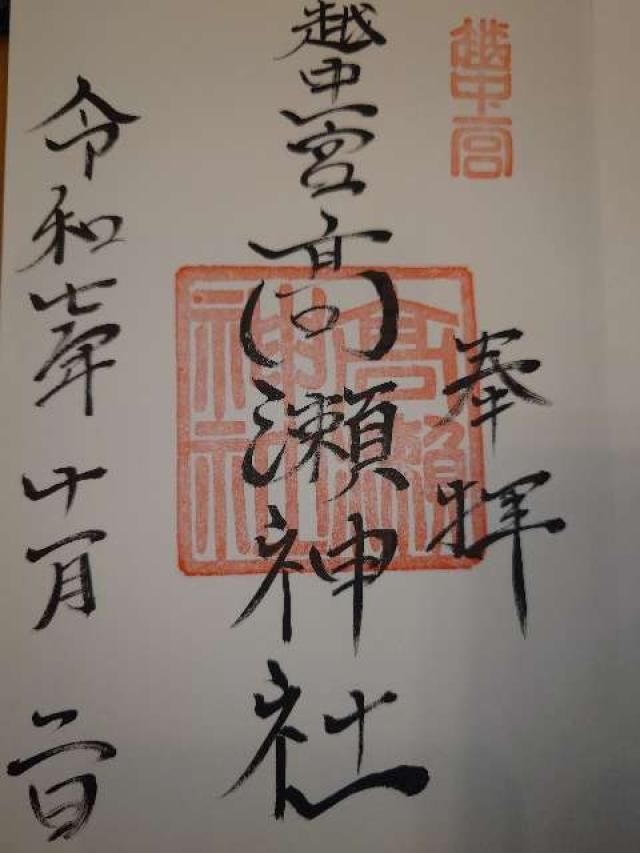 越中一宮
奉拝
越中一宮 高瀬神社
高瀬
神社
令和七年 十一月 二日